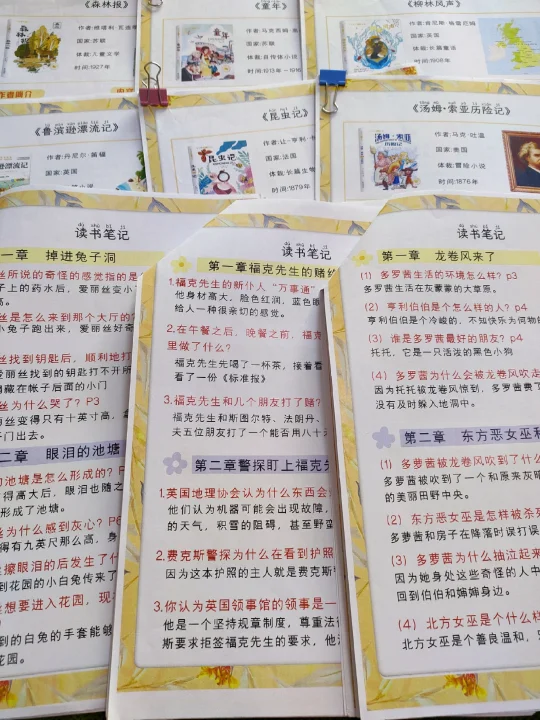 《森林报》
国家:苏联
体裁:儿童文学
时间:1927年
作者简介
《童年》
童年
国家:苏联
体裁:自传体小说
《柳林风声》
国家:英国
体裁:长篇童话
时间:1908年
《鲁滨逊漂流记》
作者:丹尼尔·笛福
国家:英国
《昆虫记》
昆虫记
国家:法国
时间:1879年
《汤姆·索亚历险记》
汤姆·索亚
历险记
作者:马克·吐温
国家:美国
体裁:冒险小说
时间:1876年
读书笔记
一章 掉进兔子洞
丝所说的奇怪的感觉指的是
子上的药水后,爱丽丝变小
丝是怎么来到那个大厅的
小兔子跑出来,爱丽丝好奇
丝找到钥匙后,顺利地打
丽丝找到的钥匙打不开所
藏在帐子后面的小门
丝为什么哭了?P3
丝变得只有十英寸高,
子门出去。
二章 眼泪的池塘
池塘是怎么形成的?
得高大后,眼泪也随之
形成了池塘。
丝为什么感到灰心?P6
得有九英尺那么高,身
丝擦眼泪的后发生了什
到花园的小白兔传来了
丝想要进入花园,现
到的白兔的手套能够
花园。
读书笔记
第一章福克先生的赌约
1.福克先生的新仆人“万事通”
他身材高大,脸色红润,蓝色眼
给人一种很亲切的感觉。
2.在午餐之后,晚餐之前,福克
里做了什么?
福克先生先喝了一杯茶,接着看
看了一份《标准报》
3.福克先生和几个朋友打了赌?
福克先生和斯图尔特、法朗丹、
夫五位朋友打了一个能否用八十
第二章警探盯上福克先
1.英国地理协会认为什么东西会
他们认为机器可能会出现故障,
的天气,积雪的阻碍,甚至野蛮
2.费克斯警探为什么在看到护照
因为这本护照的主人就是费克斯
3.你认为英国领事馆的领事是一
他是一个坚持规章制度,尊重法
斯要求拒签福克先生的要求,他
读书笔记
第一章 龙卷风来了
(1) 多罗茜生活的环境怎么样?p3
多罗茜生活在灰蒙蒙的大草原。
(2) 亨利伯伯是个怎么样的人?p4
亨利伯伯是个冷峻的,不知快乐为何物的
(3) 谁是多罗茜最好的朋友?p4
托托,它是一只活泼的黑色小狗
(4) 多罗茜为什么会被龙卷风吹走
因为托托被龙卷风惊到,多罗茜费了
没有及时躲入地洞中。
第二章 东方恶女巫和
(1) 多萝茜被龙卷风吹到了什么
多萝茜被吹到了一个和原来灰暗
的美丽田野中央。
(2) 东方恶女巫是怎样被杀死
多萝茜和房子在降落时误打误
(3) 多萝茜为什么抽泣起来
因为她身处这些奇怪的人中
回到伯伯和婶婶身边。
(4) 北方女巫是个什么样
北方女巫是个善良温和,